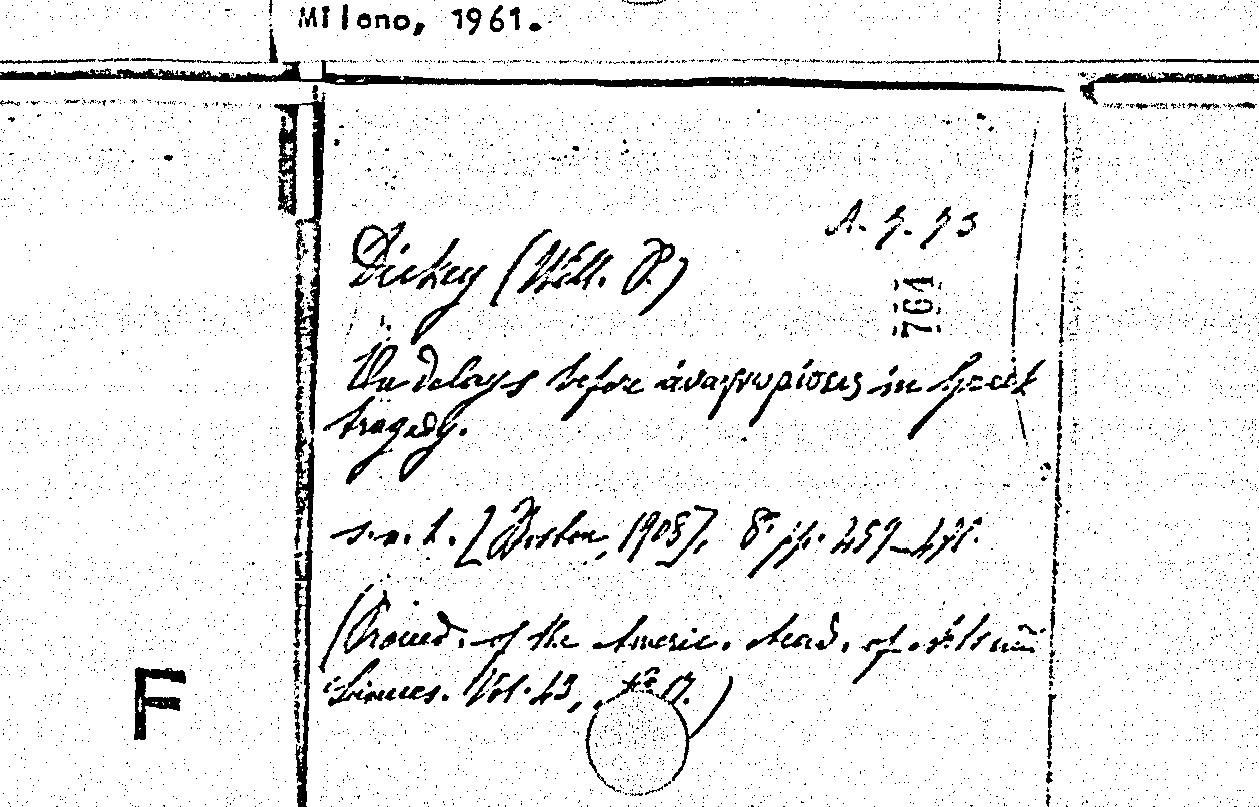 Milano, 1961.
A. 9. 93
704
Dickey (Will. P.)
The delays before ἀναγνωρίσεις in Greek
tragedy.
s. n. t. [Boston, 1908]. 8° pp. 459-471.
(Proceed. of the Americ. Acad. of Arts and
Sciences. Vol. 43, Nº 17.)
F